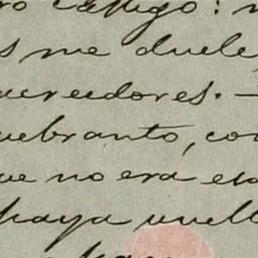 ro castigo: n
s me duele
acreedores. —
uebranto, con
ue no era es
haya vuelt